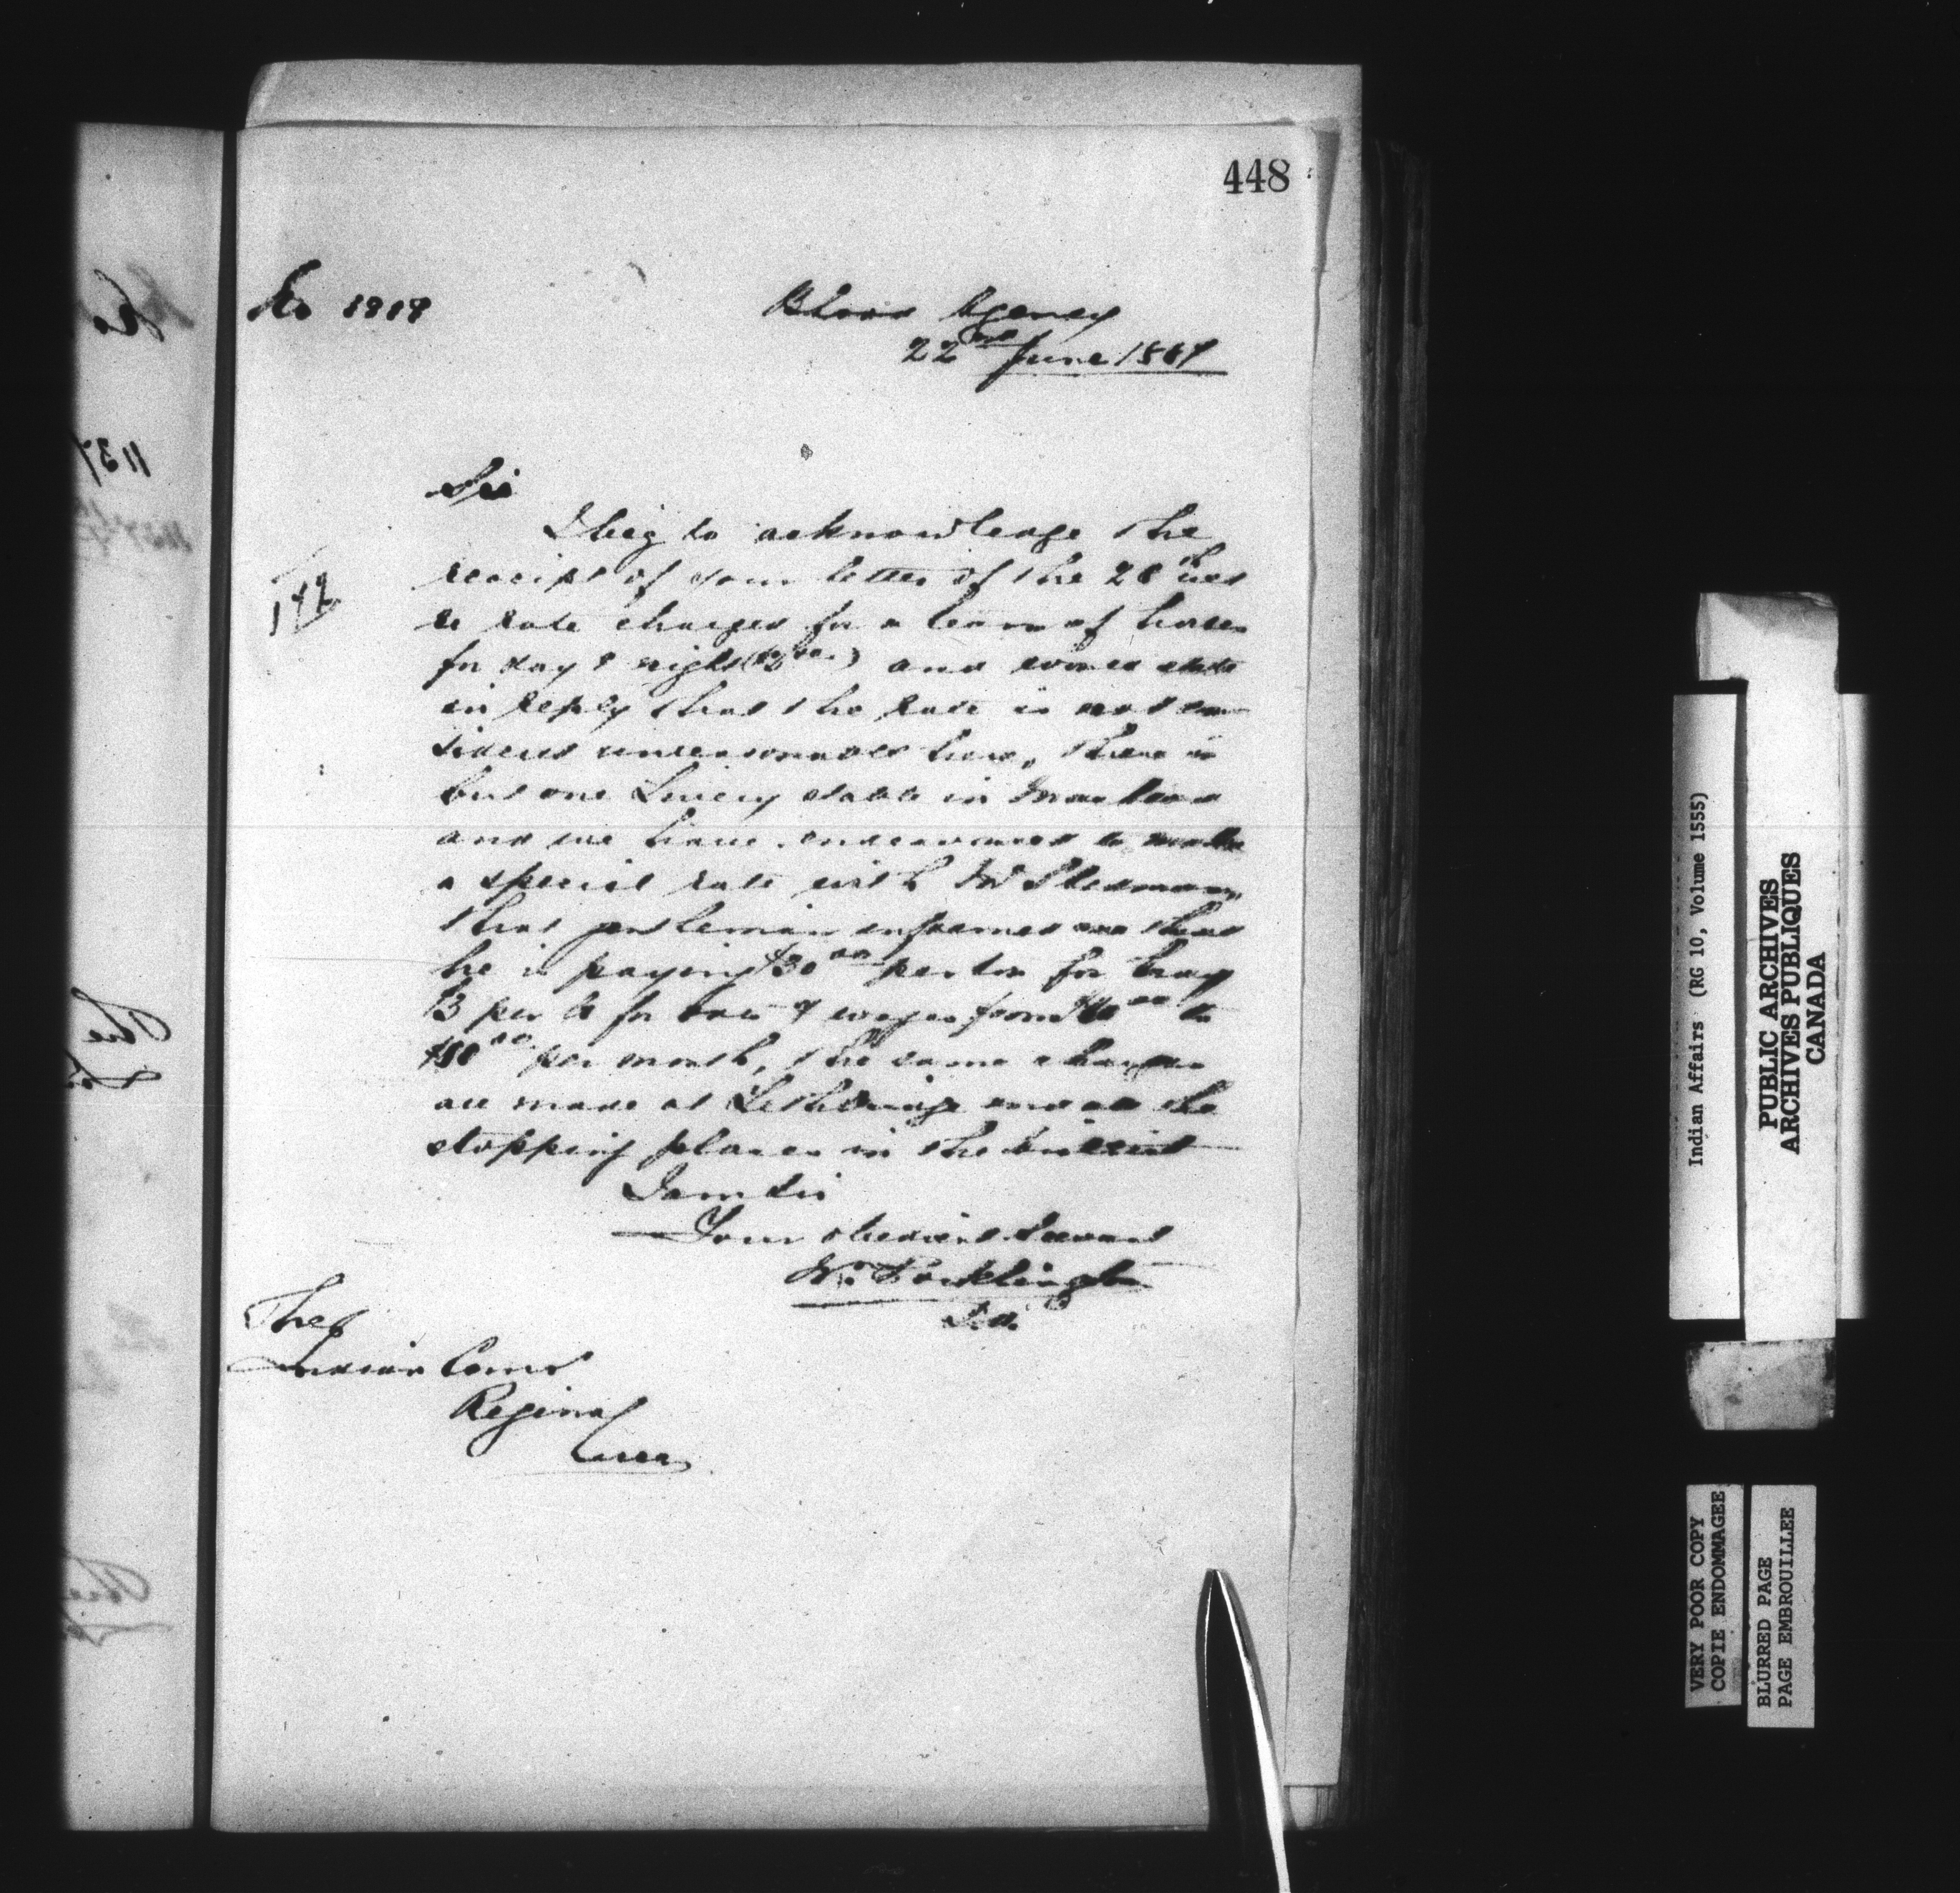 448
No
Blood Agency
22nd June 188
Sir
I beg to acknowledge the
receipt of your letter of the 20th
re rate charged for a team of horses
for day & night and would state
in reply that the rate is not con
sidered unreasonable here, there is
but one Livery stable in Macleod
and we have endeavoured to make
a special rate with Mr Stedman,
that gentleman informed me that
he is paying $30 00 per ton for hay
3 per for oats & wages from to
per month, the same charges
are made at Lethbridge and all the
stopping places in the district
I am Sir
Your obedient Servant
Wm Pocklington
I.A.
The
Indian Comr
Regina
Assa
Indian Affairs (RG 10, Volume 1555)
PUBLIC ARCHIVES
ARCHIVES PUBLIQUES
CANADA
VERY POOR COPY
COPIE ENDOMMAGEE
BLURRED PAGE
PAGE EMBROUILLEE